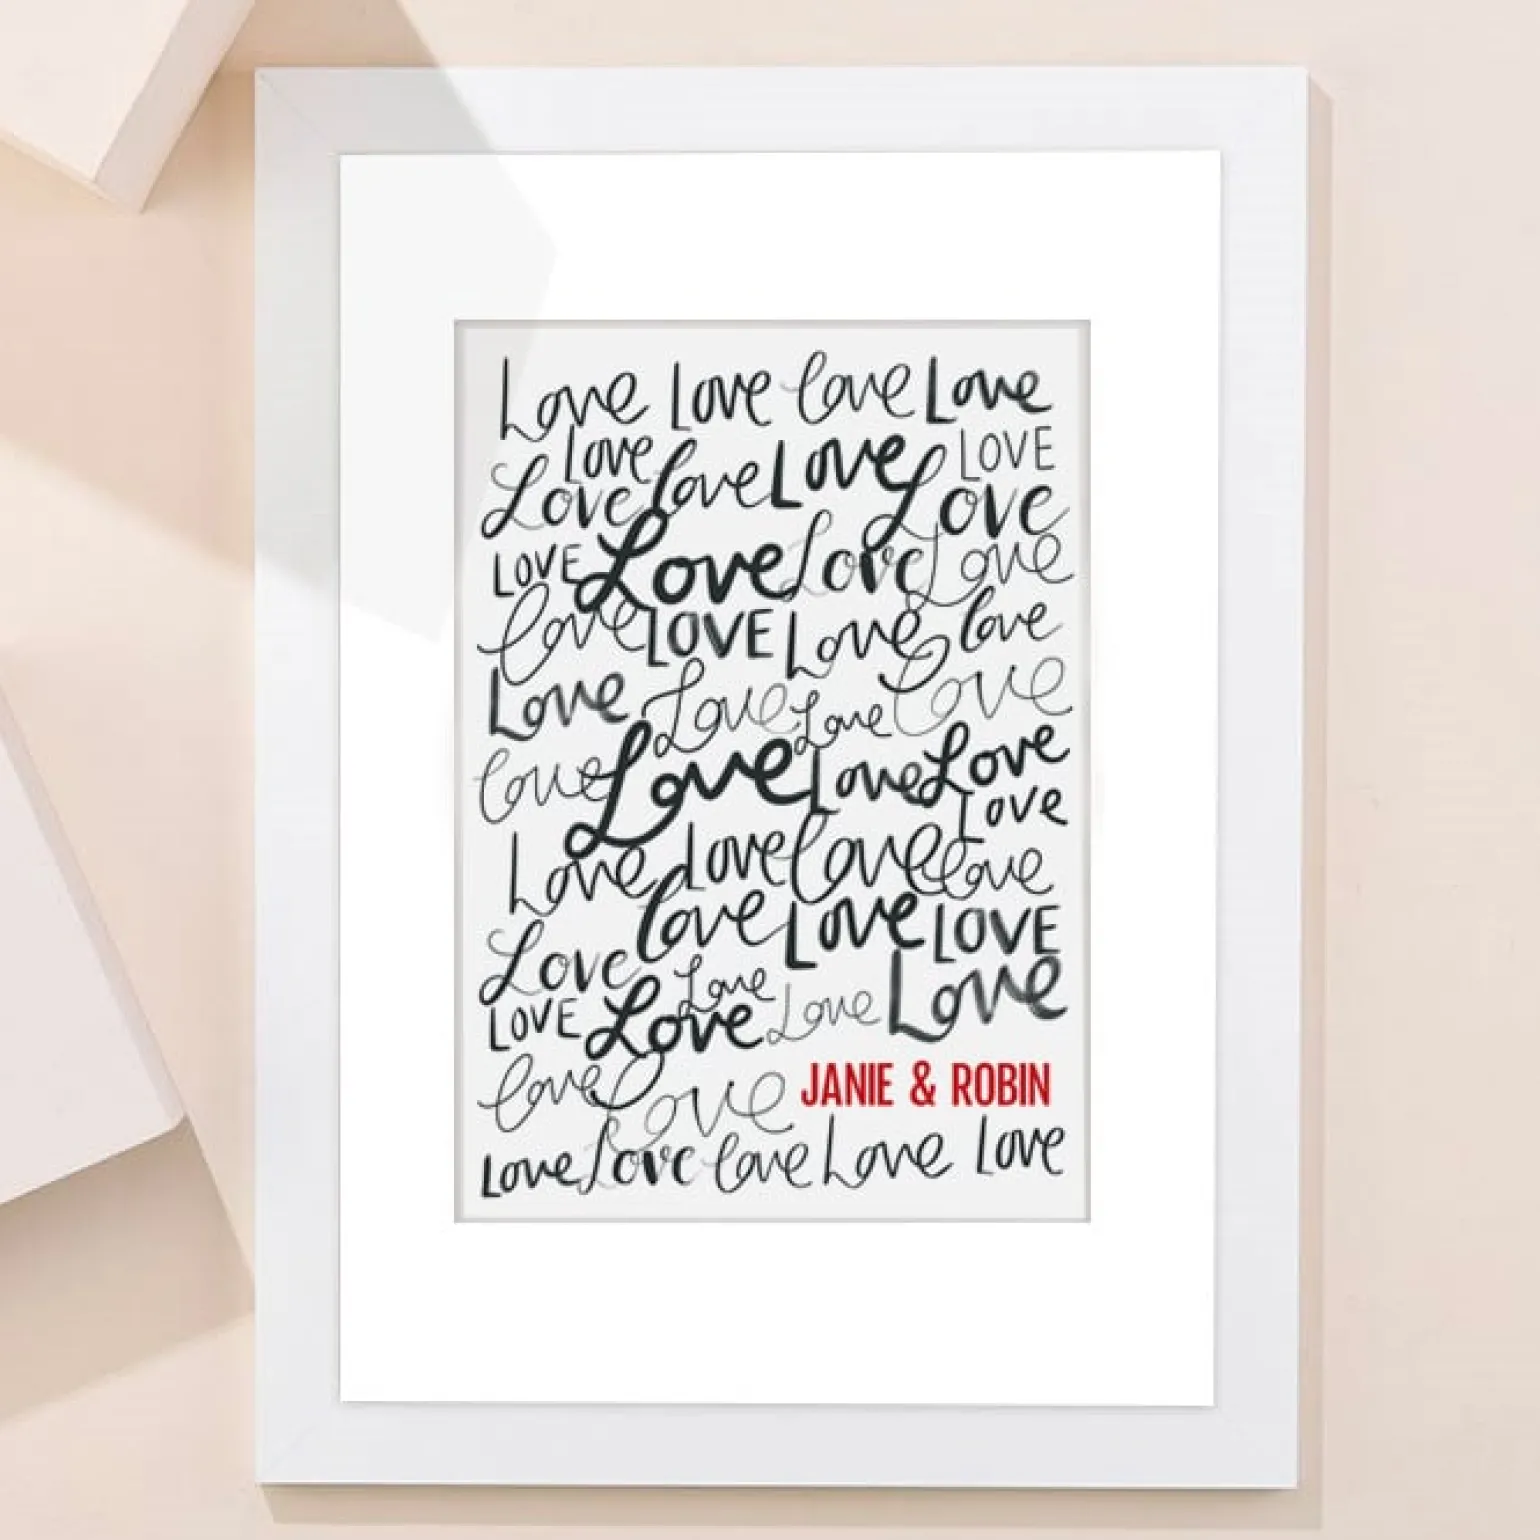 Love Love Love Love
Love Love Love LOVE
Love Love
LOVE Love Love Love
Love LOVE Love Love
Love Love Love Love
Love Love Love Love
Love
Love Love Love Love
Love Love LOVE
Love Love Love
LOVE Love Love
Love Love JANIE & ROBIN
Love Love Love Love Love